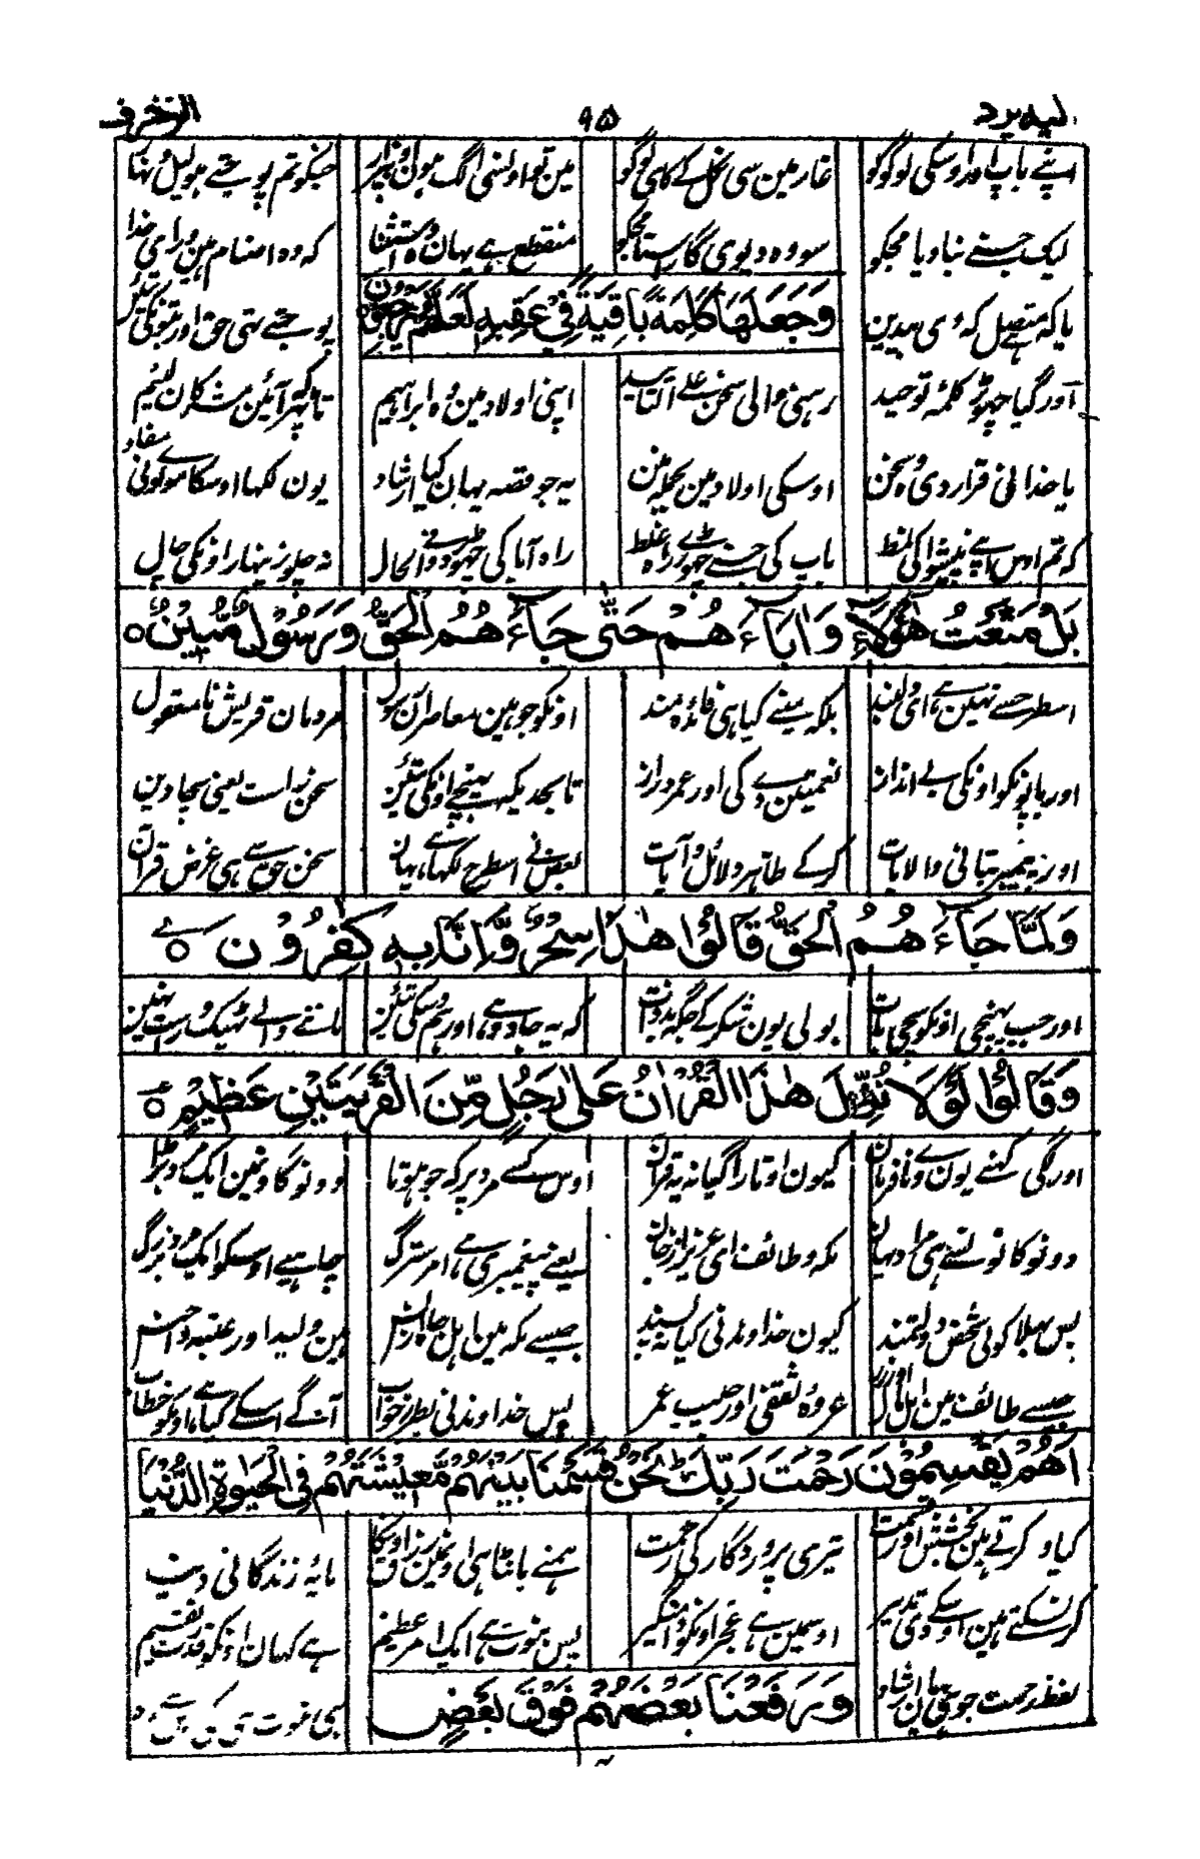 الیه یرد ۹۵ الزخرف
اپنے باپ اور اوسکی لوگوکو غار مین سی نکل کے کاہی لوگو مین تو اونسی الگ ہون بیزار جنکو تم پوجتے ہو لیل و نہار
لیک جسنے بنا دیا مجکو سو وہ دیوی گا رستا مجکو منقطع ہے یہان وہ استثنا کہ وہ اصنام ہین ورای خدا
یا کہ متصل کہ وی بیدین پوجتے تھی حق اور بتونکی تئین
وَجَعَلَهَا كَلِمَةً بَاقِيَةً فِي عَقِبِهِ لَعَلَّهُمْ يَرْجِعُونَ
اور گیا چھوڑ کلمۂ توحید رہنی والی سخن علے التائید اپنی اولاد مین وہ ابراہیم تا پھر آئین مشرکان لئیم
یا خدا نی قرار دی وہ سخن اوسکی اولاد مین یہ جو قصہ یہان کیا ارشاد یون لکھا اوسکا مولوی نی مفاد
کہ تم اوس اپنے پیشوا کی نمط باپ کی جسنے چھوڑی راہ غلط راہ آبا کی چھوڑ دو الحال نہ چلو زینہار اونکی چال
بَلْ مَتَّعْتُ هٰؤُلَاءِ وَاٰبَاءَهُمْ حَتّٰى جَاءَهُمُ الْحَقُّ وَرَسُوْلٌ مُّبِيْنٌ ○
اسطرحسے نہین ہے ای دلبند بلکہ مینے کیا ہی فائدہ مند اونکو جو ہین معاصران رسول مردمان قریش نا معقول
اور باپونکو اونکی بے انداز نعمتین دیکے اور عمر دراز تا بحدیکہ پہنچے اونکی تئین سخن راست یعنی سچا دین
اور پیمبر بیانی والا بات کرکے ظاہر دلائل و آیات بعض نے اسطرح لکھا ہے یہان سخن حق سے ہی غرض قرآن
وَلَمَّا جَاءَهُمُ الْحَقُّ قَالُوْا هٰذَا سِحْرٌ وَّاِنَّا بِهٖ كٰفِرُوْنَ ○
اور جب پہنچی اونکو سچی بات بولی یون شکر کے جگہ کہ یہ جادو ہے اور ہم اسکی تئین ماننے والے ٹھیک راست نہین
وَقَالُوْا لَوْلَا نُزِّلَ هٰذَا الْقُرْاٰنُ عَلٰى رَجُلٍ مِّنَ الْقَرْيَتَيْنِ عَظِيْمٍ ○
اور لگی کہنے یون وے نافرمان کیون اوتارا گیا نہ یہ قرآن اوس کسے مرد پر کہ جو ہوتا دونو گاونمین ایک مرد بڑا
دونو گانو نسے ہی مراد یہان مکہ و طائف ای عزیز از جان یعنے پیغمبری ہے امر سترگ چاہیے اوسکو ایک مرد بزرگ
پس بھلا کوئی شخص دولتمند کیون خداوند نی کیا نہ پسند جیسے مکہ مین اہل جاہ مین ولید اور عتبہ
جیسے طائف مین اہل مال عروۂ ثقفی اور حبیب عمر پس خداوند نی بطرز خواب آگے اسکے کیا ہے اونکو خطاب
اَهُمْ يَقْسِمُوْنَ رَحْمَتَ رَبِّكَ نَحْنُ قَسَمْنَا بَيْنَهُمْ مَّعِيْشَتَهُمْ فِي الْحَيٰوةِ الدُّنْيَا
کیا وہ کرتے ہین بخشش اور قسمت تیری پروردگار کی رحمت ہمنے بانٹا ہی اونمین مایۂ زندگانی دنیا
کر نہ سکتے ہین اوسکے وی تدبیر اوسمین ہے عجز اونکو دامنگیر پس نبوت ہے ایک امر عظیم ہے کہان اونکو قدرت تقسیم
لفظ رحمت جو ہی یہان ارشاد
وَرَفَعْنَا بَعْضَهُمْ فَوْقَ بَعْضٍ